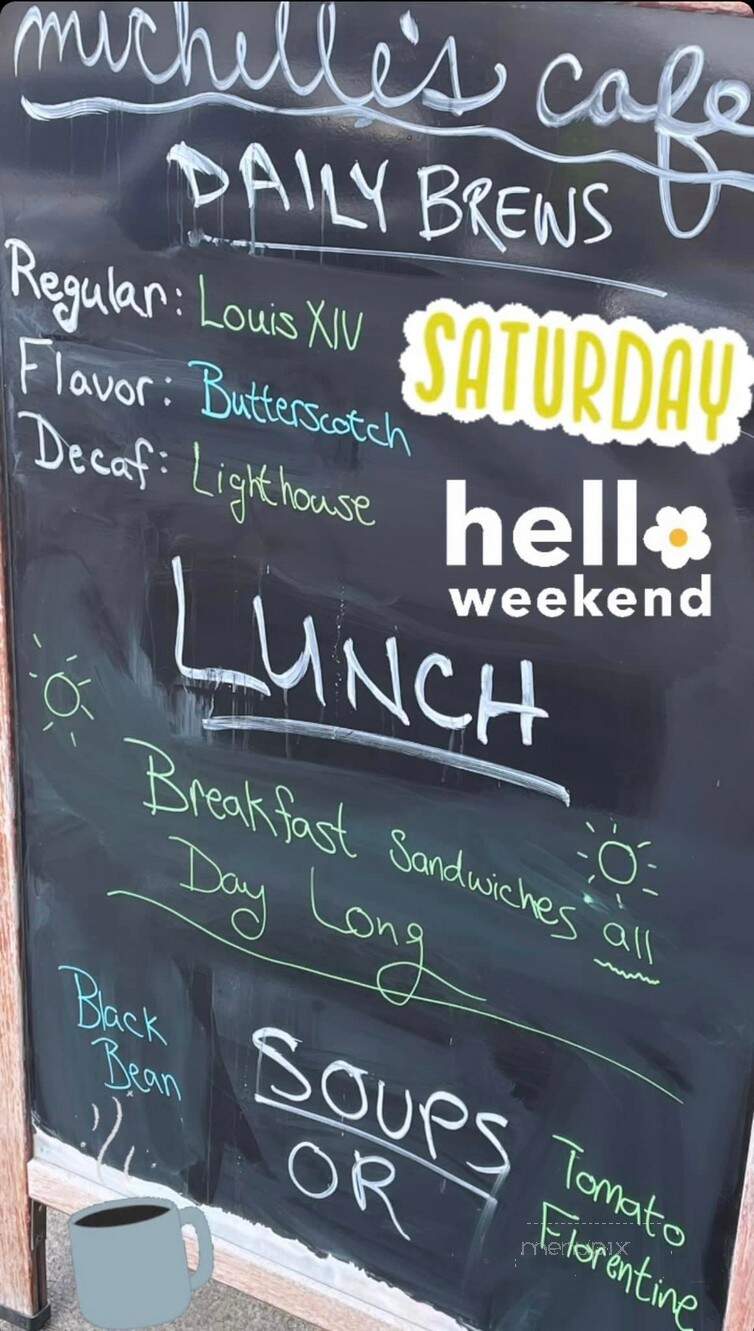 michelle's cafe
DAILY BREWS
Regular: Louis XIV
Flavor: Butterscotch
Decaf: Lighthouse
SATURDAY
hello
weekend
LUNCH
Breakfast Sandwiches all
Day Long
Black
Bean
SOUPS
OR
Tomato
Florentine
menupix